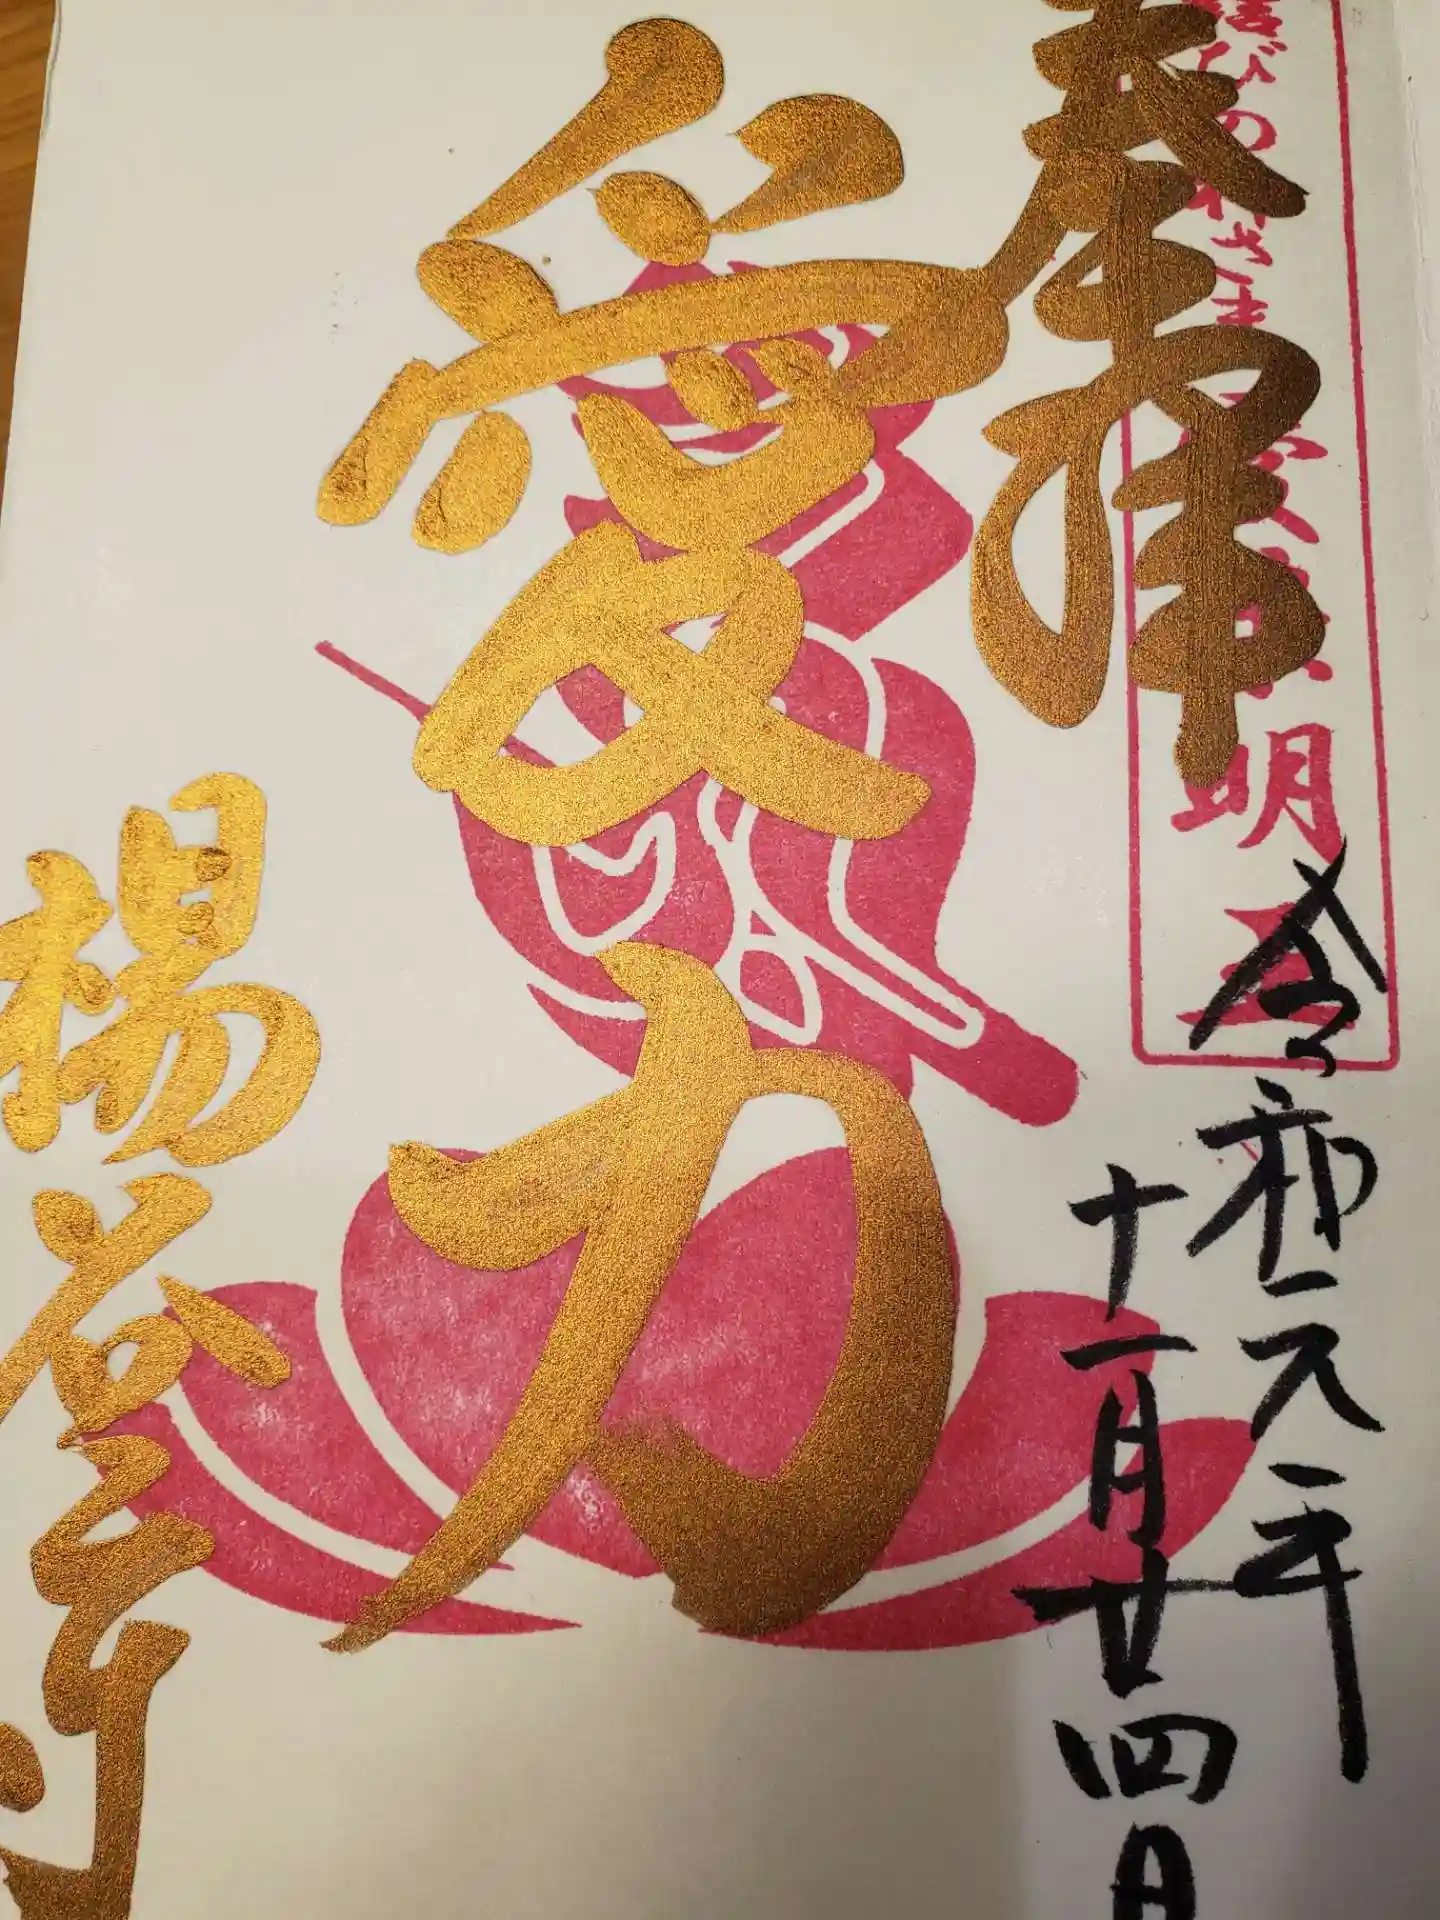 奉拝
結びのねさま 愛染明王
令和元年
十一月廿四日
愛力
楊谷寺